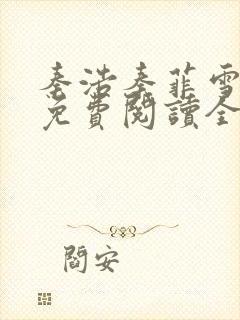 秦浩秦菲雪
免費閱讀全
閻安